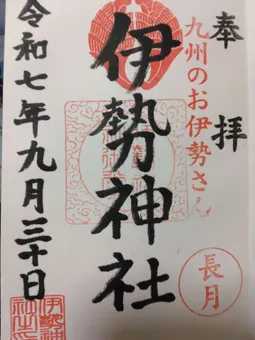 奉拝
九州のお伊勢さん
長月
伊勢神社
令和七年九月三十日
伊勢神社之印